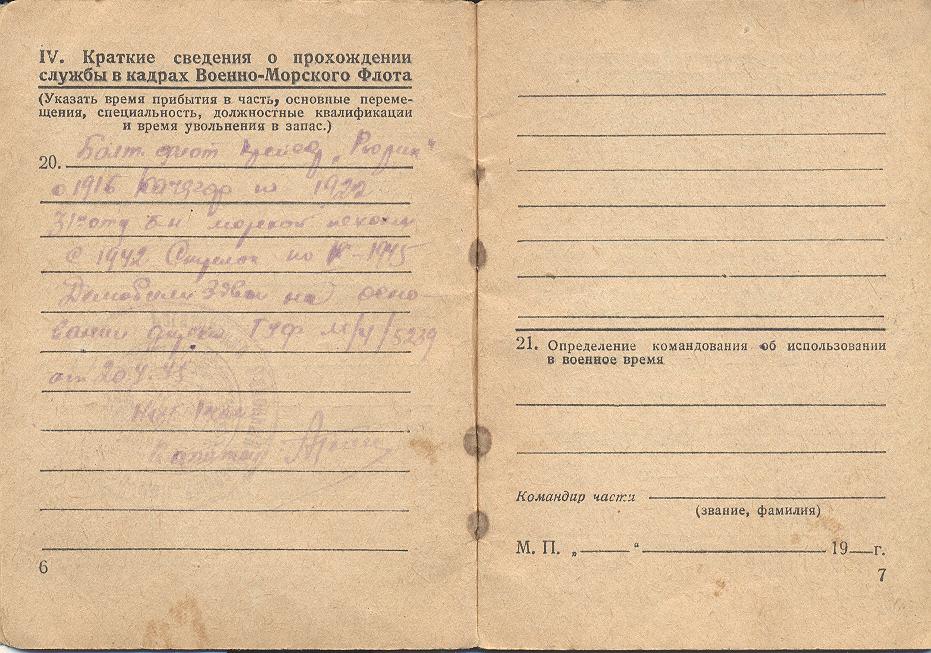 IV. Краткие сведения о прохождении
службы в кадрах Военно-Морского Флота
(Указать время прибытия в часть, основные переме-
щения, специальность, должностные квалификации
и время увольнения в запас.)
20. Балт. флот крейсер „Рюрик“
с 1916 по 1922
морской пехоты
с 1942 Стрелок по V-1945
Демобилизован на осно-
вании М/4/5239
от
капитан
6
21. Определение командования об использовании
в военное время
Командир части
(звание, фамилия)
М. П. „ “ 19 г.
7